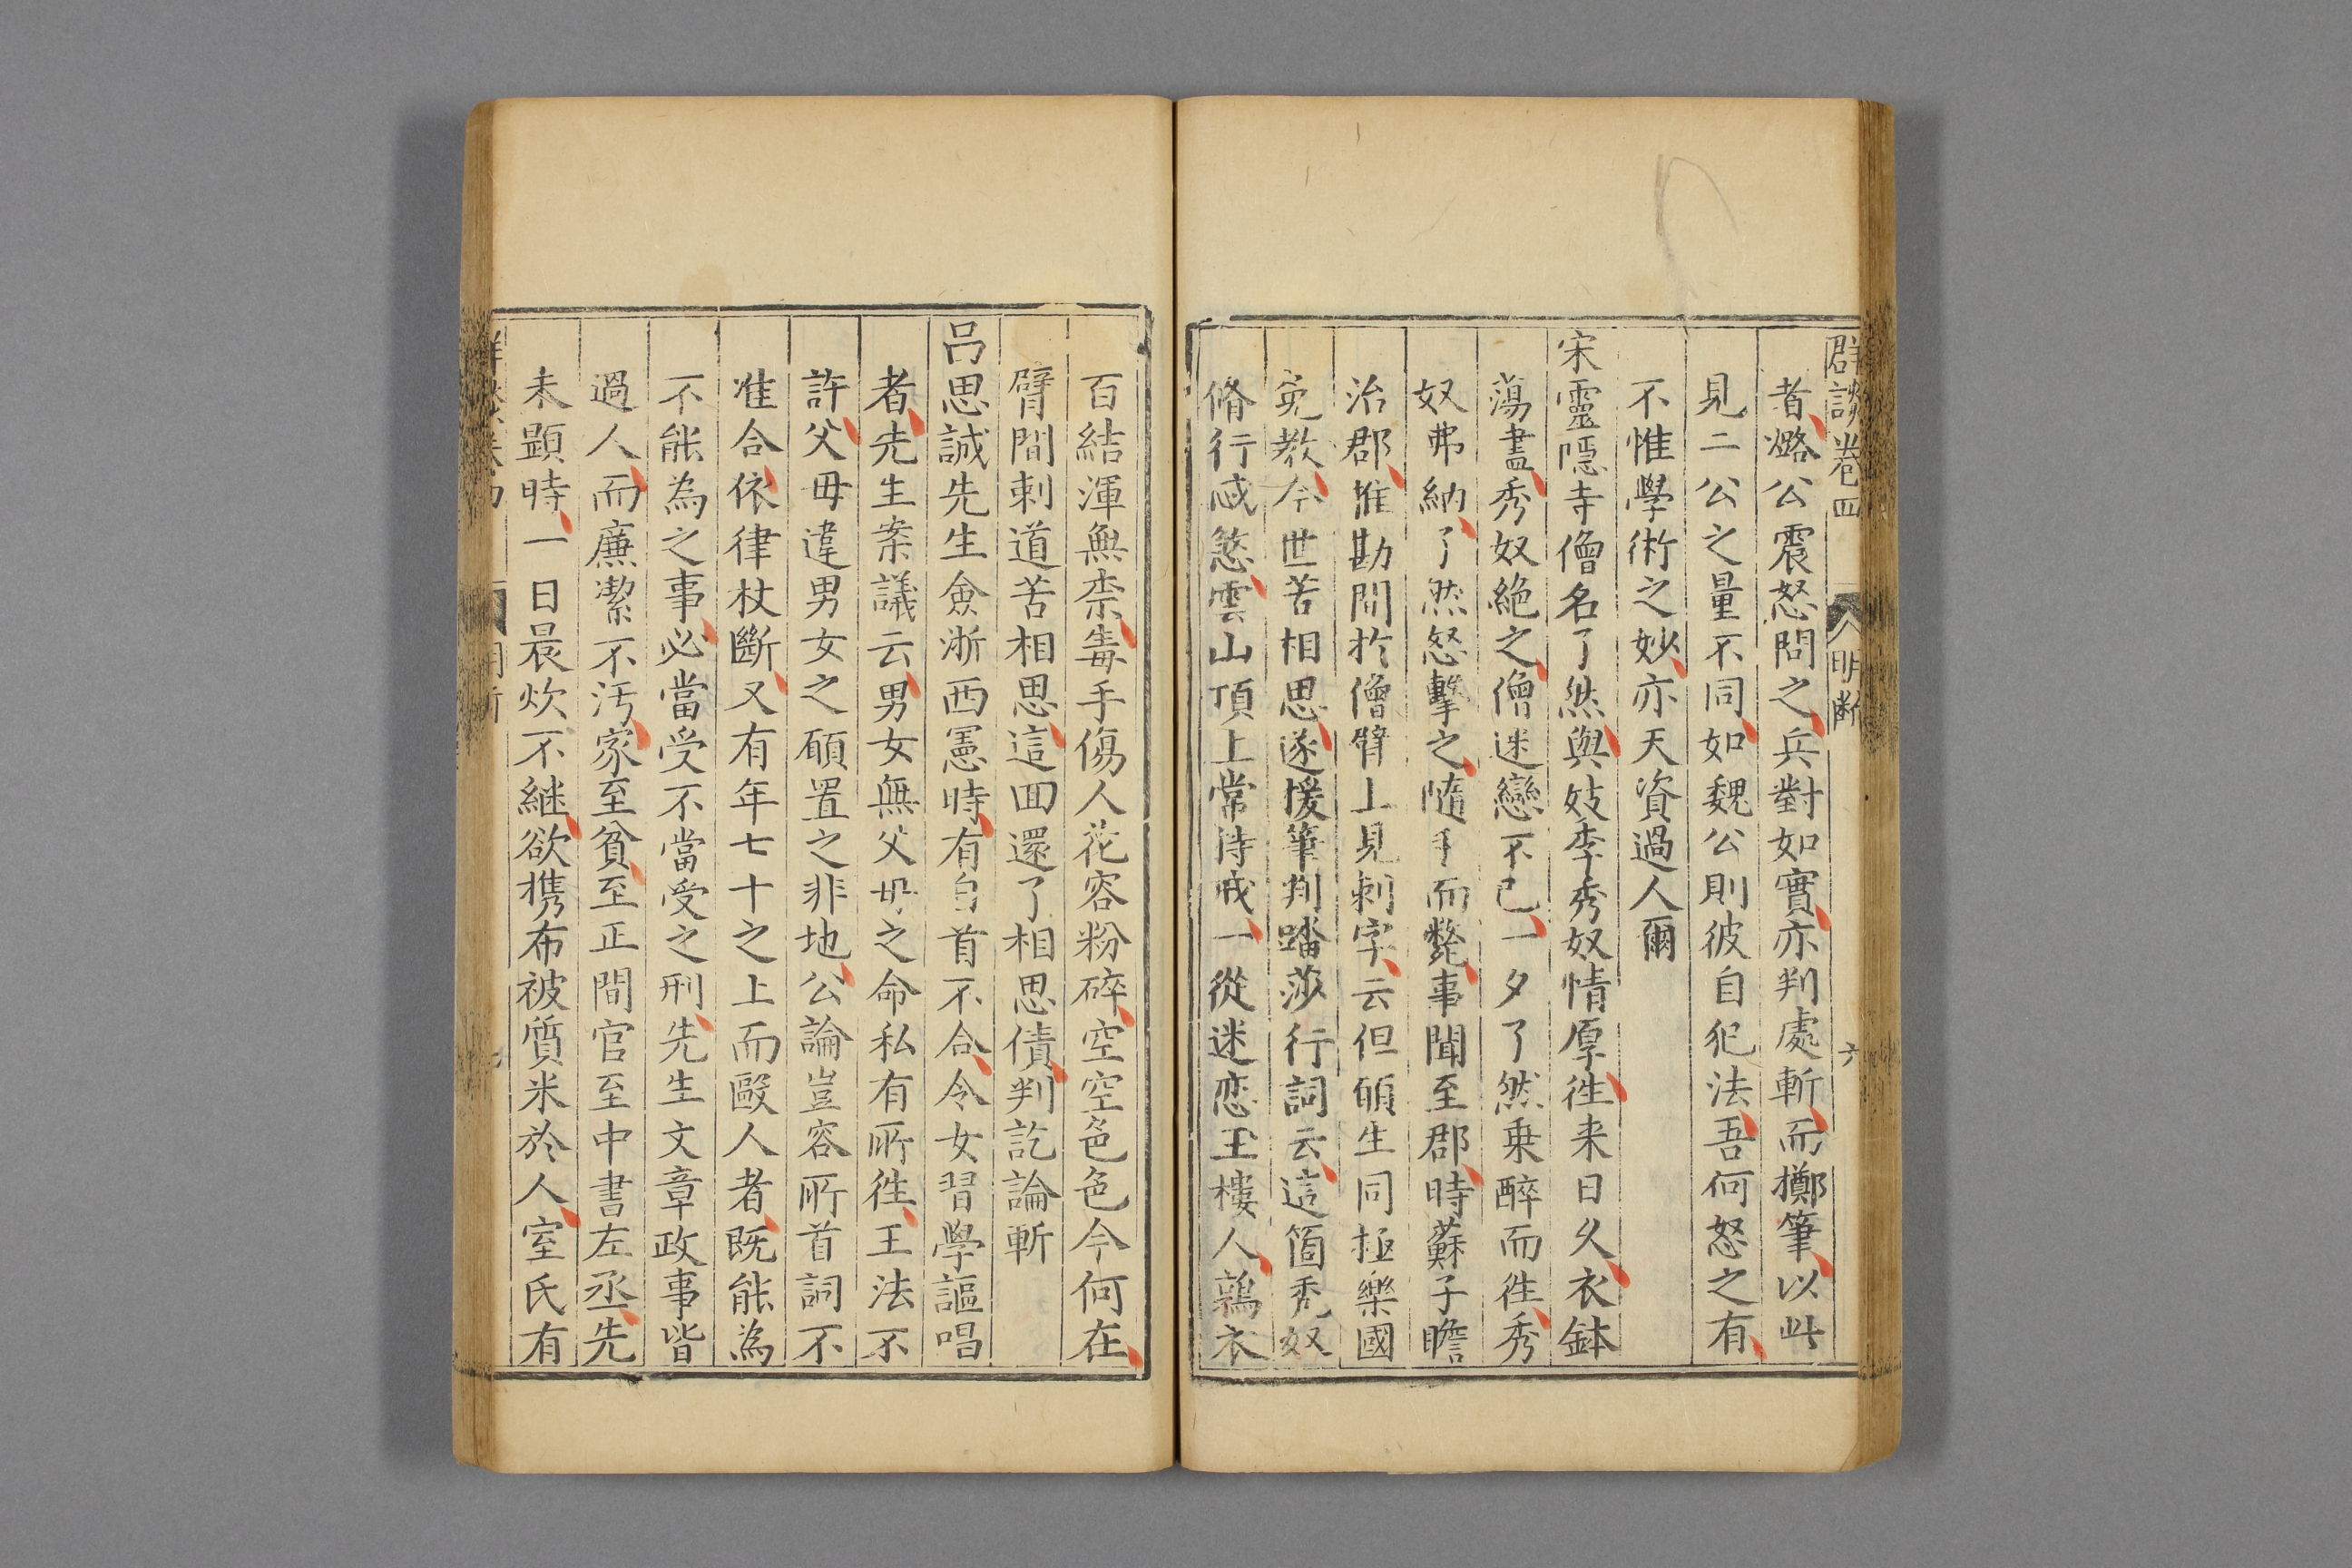 群談卷四 明断 六
者潞公震怒問之兵對如實亦判處斬而擲筆以此
見二公之量不同如魏公則彼自犯法吾何怒之有
不惟學術之妙亦天資過人爾
宋靈隠寺僧名了然與妓李秀奴情厚徃来日久衣鉢
蕩盡秀奴絶之僧迷戀不已一夕了然乗醉而徃秀
奴弗納了然怒擊之隨手而斃事聞至郡時蘇子瞻
治郡推勘間扵僧臂上見刺字云但願生同極樂國
免教今世苦相思遂援筆判踏莎行詞云這箇秃奴
脩行忒煞雲山頂上常持戒一從迷恋玉樓人鶉衣
百結渾無柰毒手傷人花容粉碎空空色色今何在
臂間刺道苦相思這回還了相思債判訖論斬
吕思誠先生僉浙西憲時有自首不合令女習學謳唱
者先生案議云男女無父母之命私有所徃王法不
許父母違男女之願置之非地公論豈容所首詞不
准合依律杖斷又有年七十之上而毆人者既能為
不能為之事必當受不當受之刑先生文章政事皆
過人而廉潔不汚家至貧至正間官至中書左丞先
未顕時一日晨炊不継欲携布被質米於人室氏有